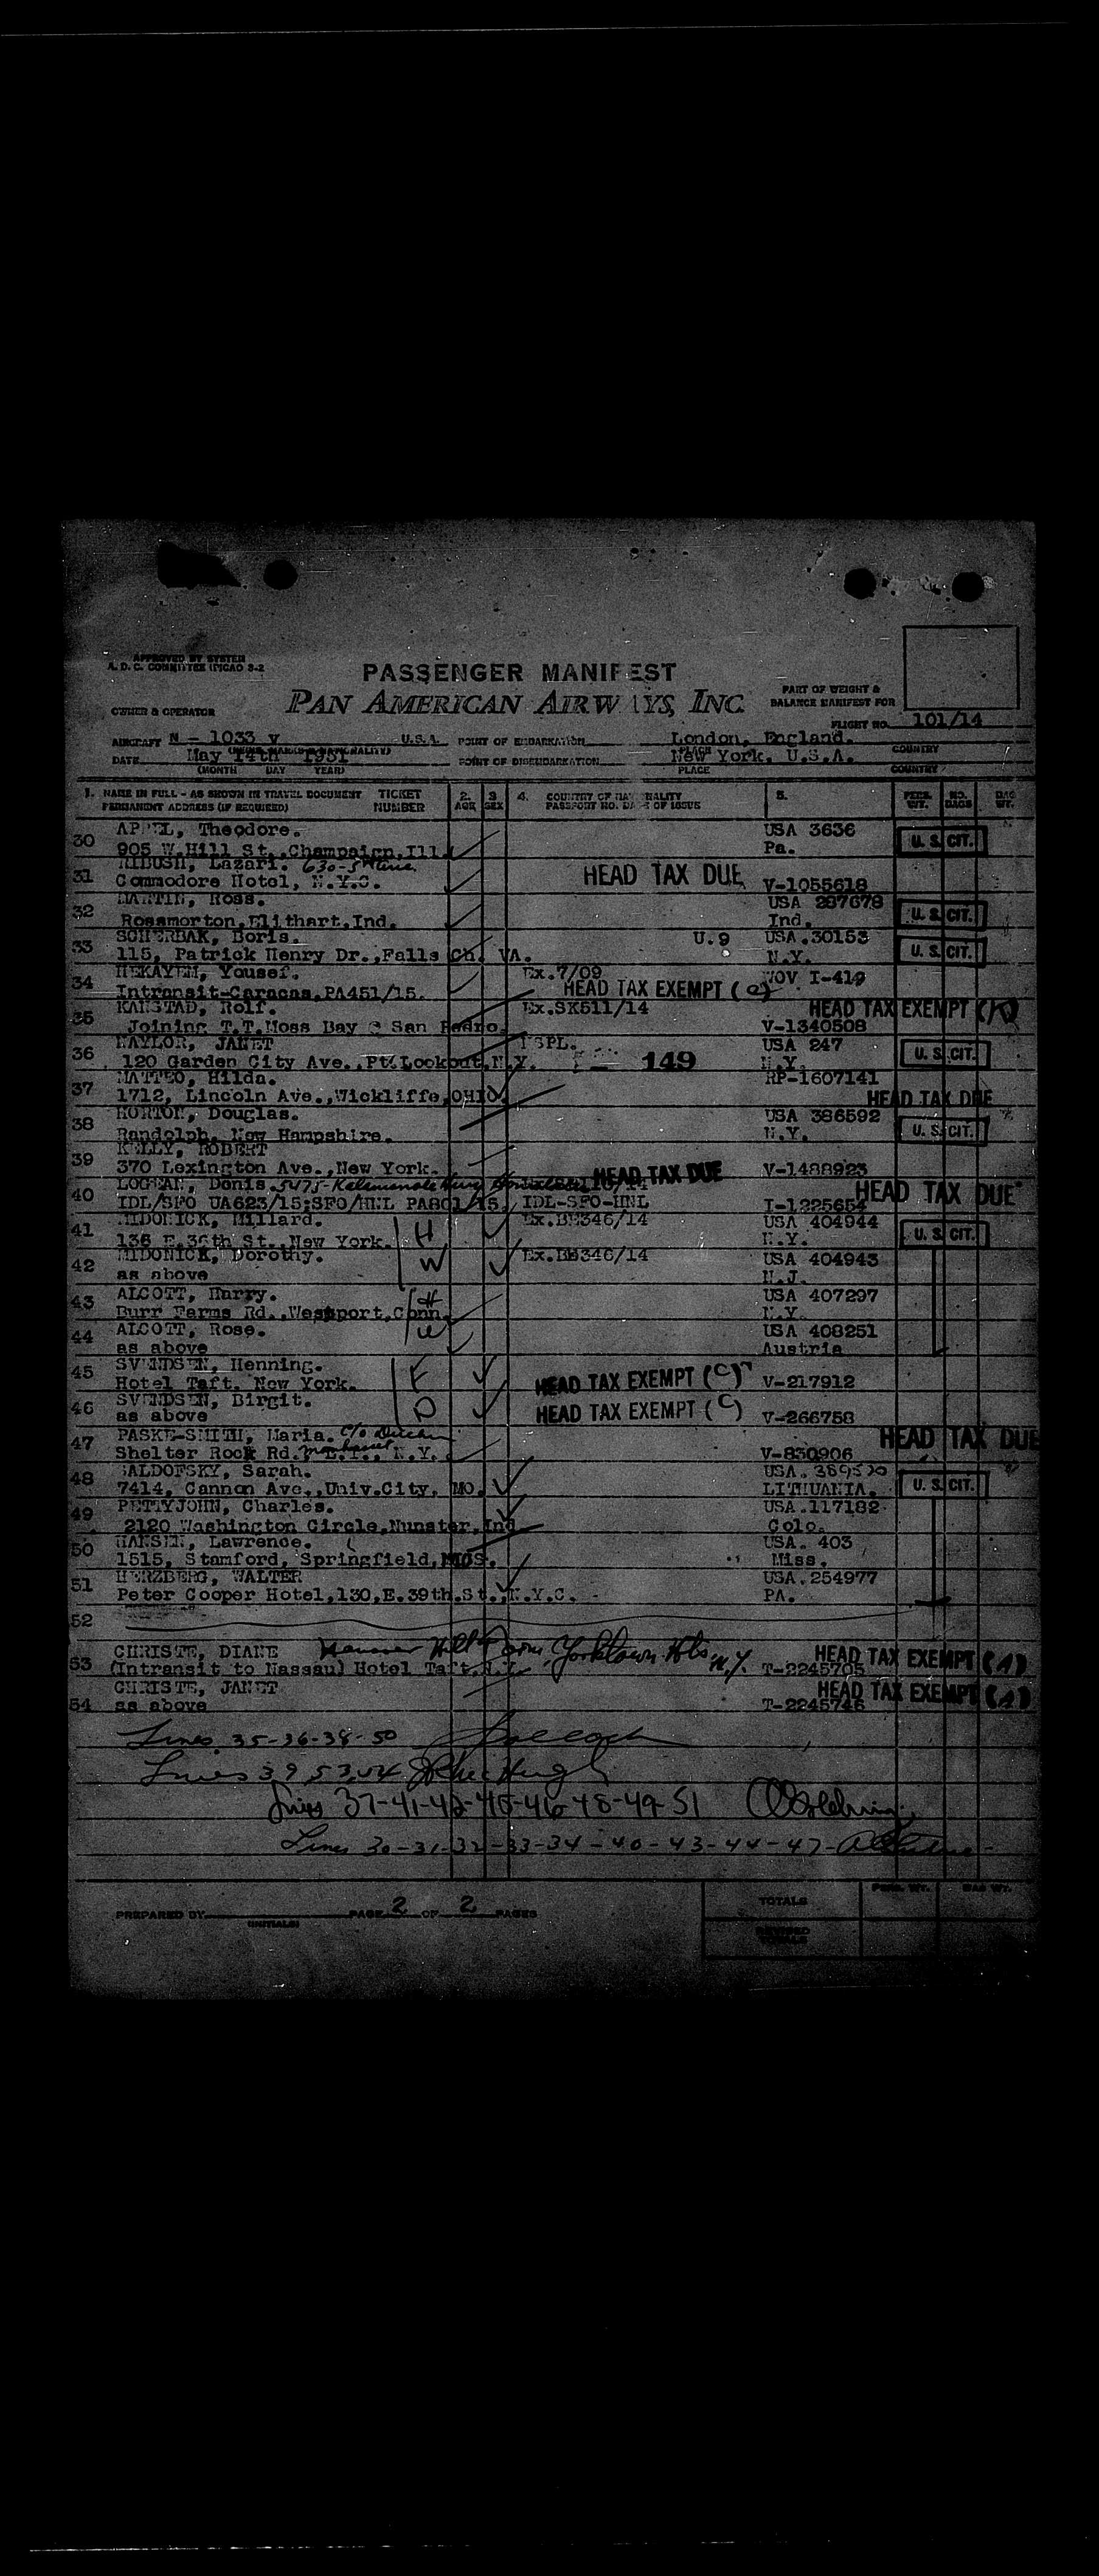 APPROVED BY SYSTEM
A. D. C. COMMITTEE (PICAO 3-2
PASSENGER MANIFEST
PAN AMERICAN AIRWAYS, INC.
PART OF WEIGHT &
BALANCE MANIFEST FOR
OWNER & OPERATOR
FLIGHT NO. 101/14
AIRCRAFT N - 1033 v U.S.A. POINT OF EMBARKATION London, England.
PLACE COUNTRY
DATE May 14th 1951 POINT OF DISEMBARKATION New York, U.S.A.
(MONTH DAY YEAR) PLACE COUNTRY
1. NAME IN FULL - AS SHOWN IN TRAVEL DOCUMENT TICKET 2. 3 4. COUNTRY OF NATIONALITY 5. PERS. NO. BAG
PERMANENT ADDRESS (IF REQUIRED) NUMBER AGE SEX PASSPORT NO. DATE OF ISSUE WT. BAGS WT.
30 APPEL, Theodore. USA 3636 U. S. CIT.
905 W.Hill St.,Champaign,Ill. Pa.
31 RIBUSH, Lazari.
Commodore Hotel, N.Y.C. HEAD TAX DUE V-1055618
32 MARTIN, Ross. USA 297678 U. S. CIT.
Rossmorton,Elithart,Ind. Ind.
33 SCHERBAK, Boris. U.9 USA.30153 U. S. CIT.
115, Patrick Henry Dr.,Falls Ch. VA. N.Y.
34 HEKAYEM, Yousef. Ex.7/09 NOV I-419
Intransit-Caracas,PA451/15. HEAD TAX EXEMPT
35 KANSTAD, Rolf. Ex.SK511/14 HEAD TAX EXEMPT
Joining T.T.Moss Bay @ San Pedro. V-1340508
36 NAYLOR, JANET USA 247 U. S. CIT.
120 Garden City Ave.,Pt.Lookout,N.Y. 149 N.Y.
37 MATTEO, Hilda. RP-1607141
1712, Lincoln Ave.,Wickliffe,OHIO HEAD TAX DUE
38 HORTON, Douglas. USA 386592 U. S. CIT.
Randolph, New Hampshire. N.Y.
39 KELLY, ROBERT
370 Lexington Ave.,New York. HEAD TAX DUE V-1488923
40 LOGEAN, Donis. HEAD TAX DUE
IDL/SFO UA623/15;SFO/HNL PA801/15. IDL-SFO-HNL I-1225654
41 MIDONICK, Millard. H Ex.BE346/14 USA 404944 U. S. CIT.
136 E.36th St.,New York. N.Y.
42 MIDONICK, Dorothy. W Ex.BE346/14 USA 404943
as above N.J.
43 ALCOTT, Harry. H USA 407297
Burr Farms Rd.,Westport,Conn. N.Y.
44 ALCOTT, Rose. W USA 408251
as above Austria
45 SVENDSEN, Henning. F
Hotel Taft. New York. HEAD TAX EXEMPT (C) V-217912
46 SVENDSEN, Birgit. D
as above HEAD TAX EXEMPT (C) V-266758
47 PASKE-SMITH, Maria. c/o HEAD TAX DUE
Shelter Rock Rd. Manhasset L.I., N.Y. V-830906
48 BALDOFSKY, Sarah. USA. U. S. CIT.
7414, Cannon Ave.,Univ.City, MO. LITHUANIA.
49 PETTYJOHN, Charles. USA.117182
2120 Washington Circle,Munster,Ind. Colo.
50 HANSEN, Lawrence. USA. 403
1515, Stamford, Springfield, Miss.
51 HERZBERG, WALTER USA.254977
Peter Cooper Hotel,130,E.39th.St.,N.Y.C. PA.
52
53 CHRISTE, DIANE Yorktown Hts N.Y. HEAD TAX EXEMPT
(Intransit to Nassau) Hotel Taft.N.Y. T-2245705
54 CHRISTE, JANET HEAD TAX EXEMPT
as above T-2245746
Lines 35-36-38-50
Lines 39, 53, 54
Lines 37-41-42-45-46-48-49-51
Lines 30-31-32-33-34-40-43-44-47-
PREPARED BY (INITIALS) PAGE 2 OF 2 PAGES
TOTALS PERS. WT. BAG WT.
REVISED
TOTALS